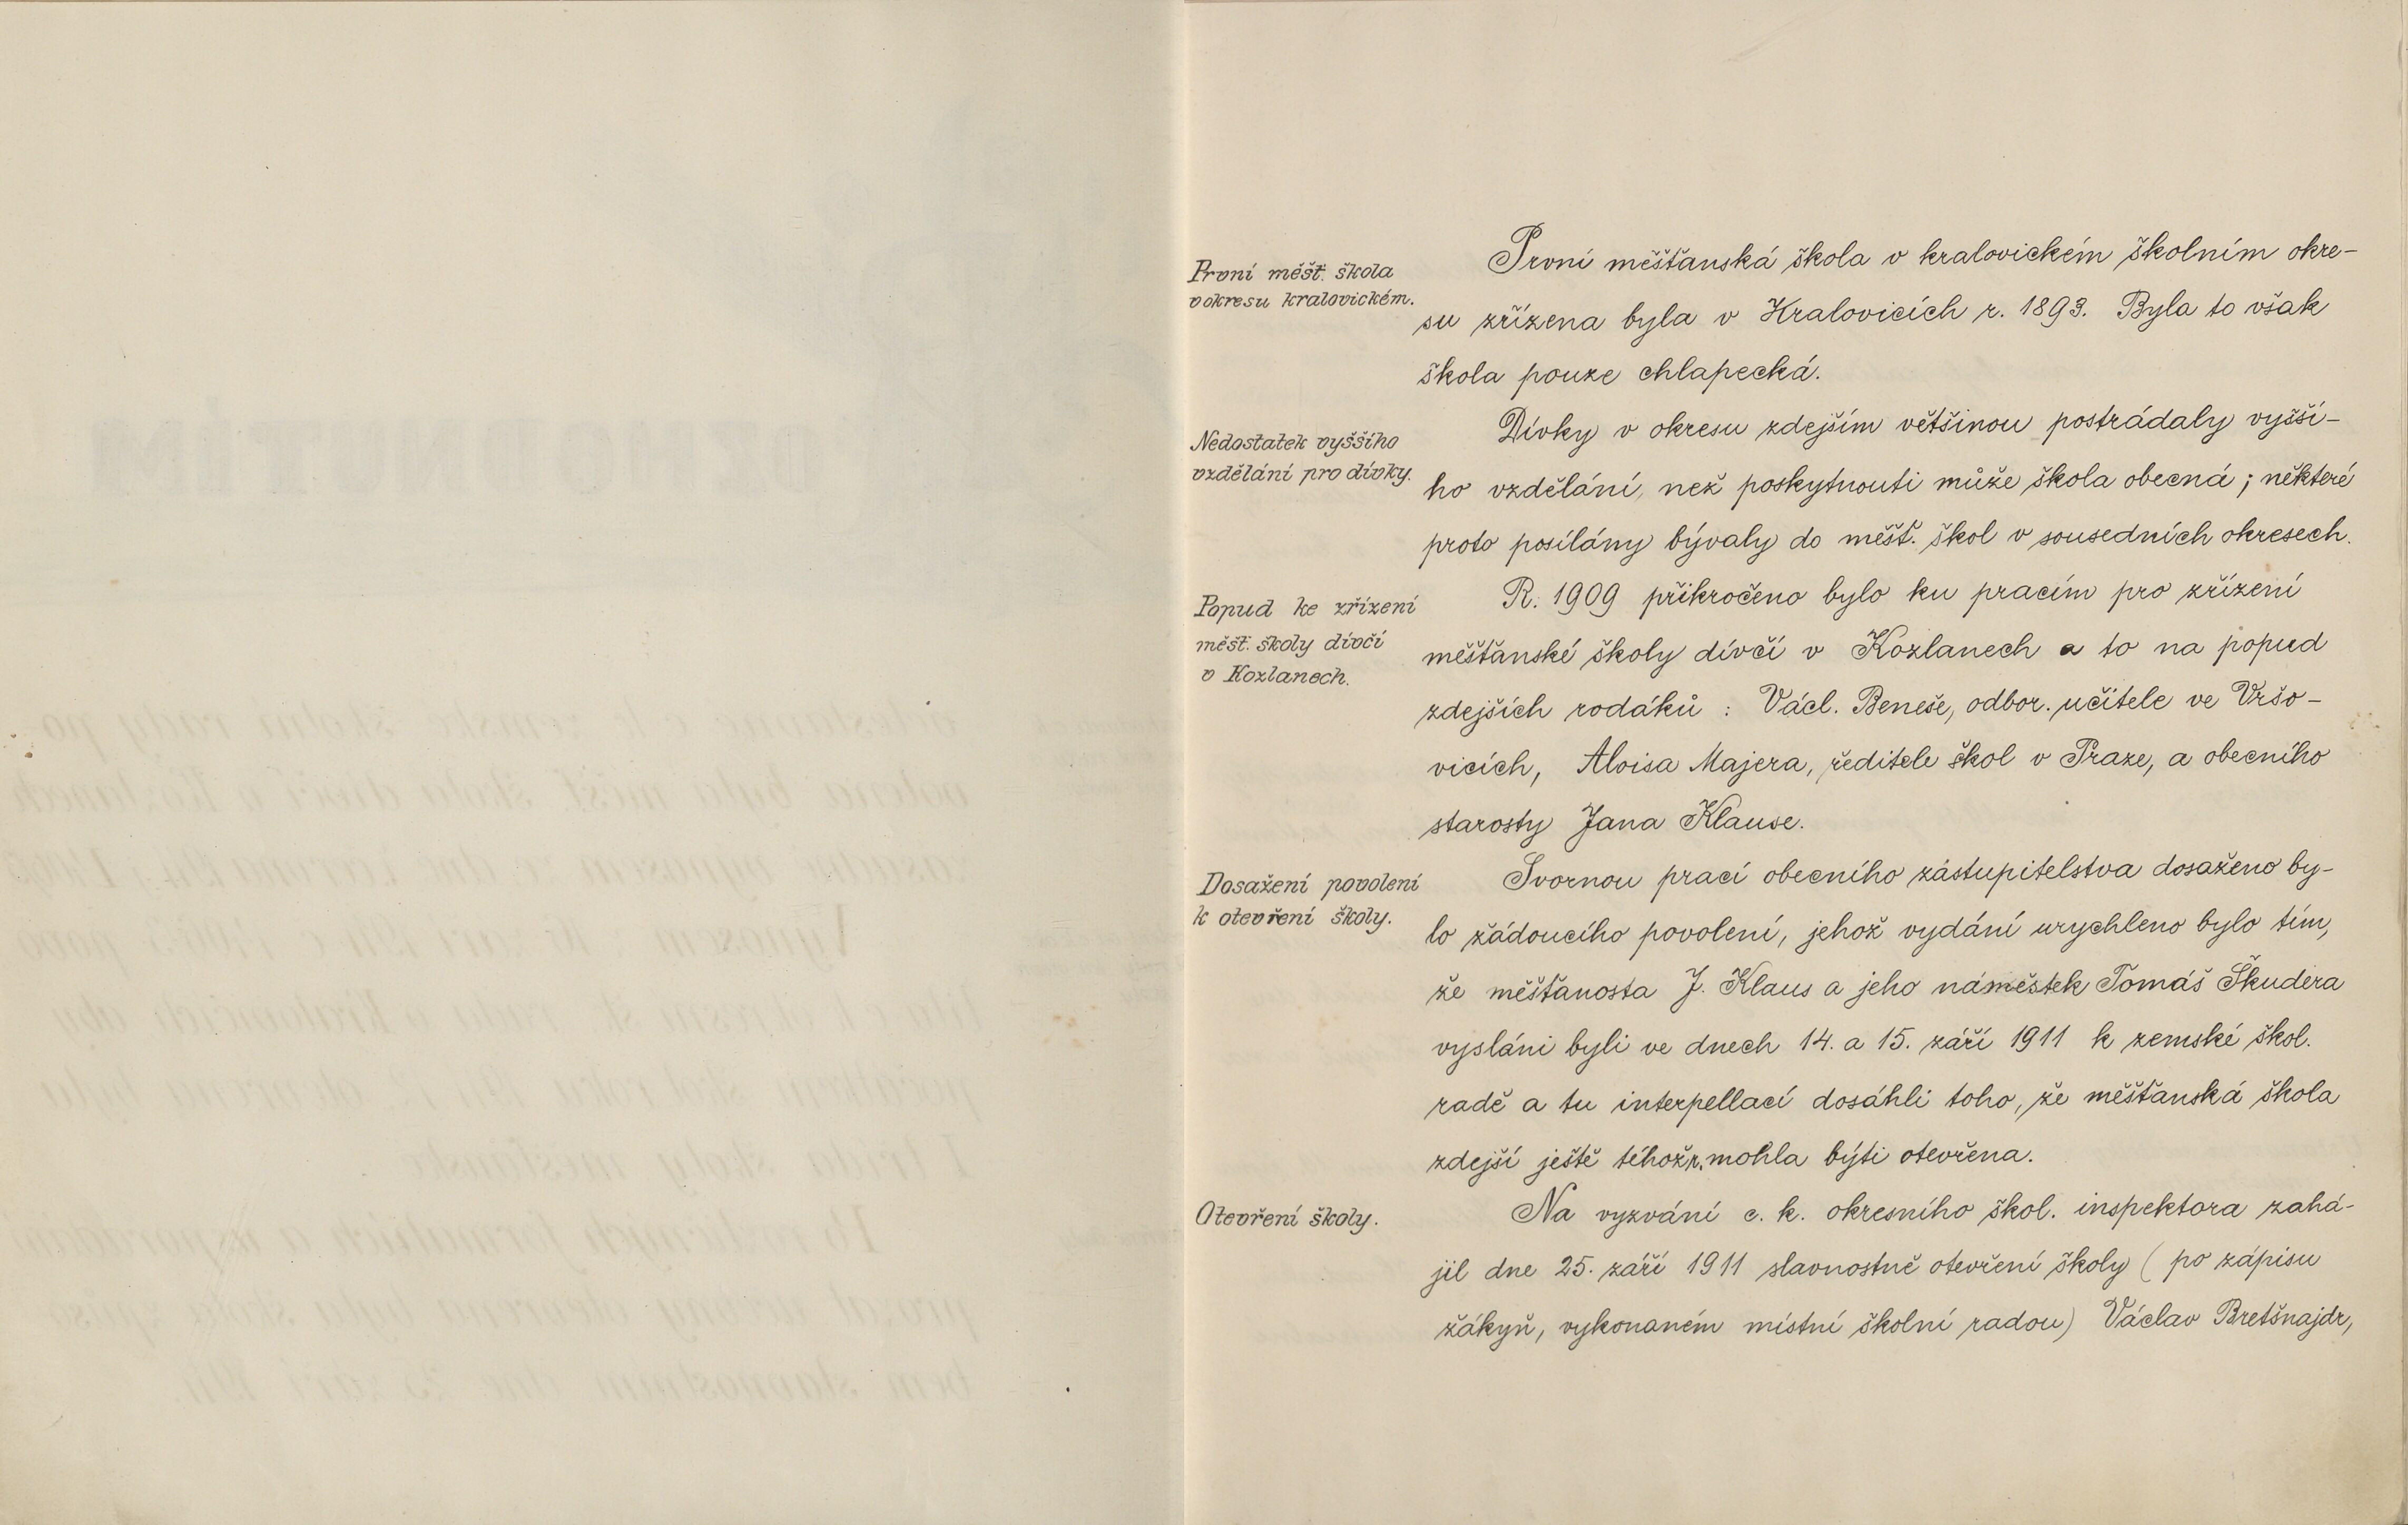 První měšť. škola
v okresu kralovickém.
První měšťanská škola v kralovickém školním okre-
su zřízena byla v Kralovicích r. 1893. Byla to však
škola pouze chlapecká.
Nedostatek vyššího
vzdělání pro dívky.
Dívky v okresu zdejším většinou postrádaly vyšší-
ho vzdělání, než poskytnouti může škola obecná; některé
proto posílány bývaly do měšť. škol v sousedních okresech.
Popud ke zřízení
měšť. školy dívčí
v Kozlanech.
R. 1909 přikročeno bylo ku pracím pro zřízení
měšťanské školy dívčí v Kozlanech a to na popud
zdejších rodáků: Václ. Beneše, odbor. učitele ve Vršo-
vicích, Aloisa Majera, ředitele škol v Praze, a obecního
starosty Jana Klause.
Dosažení povolení
k otevření školy.
Svornou prací obecního zástupitelstva dosaženo by-
lo žádoucího povolení, jehož vydání urychleno bylo tím,
že měšťanosta J. Klaus a jeho náměstek Tomáš Škudera
vysláni byli ve dnech 14. a 15. září 1911 k zemské škol.
radě a tu interpellací dosáhli toho, že měšťanská škola
zdejší ještě téhož r. mohla býti otevřena.
Otevření školy.
Na vyzvání c. k. okresního škol. inspektora zahá-
jil dne 25. září 1911 slavnostně otevření školy (po zápisu
žákyň, vykonaném místní školní radou) Václav Bretšnajdr,